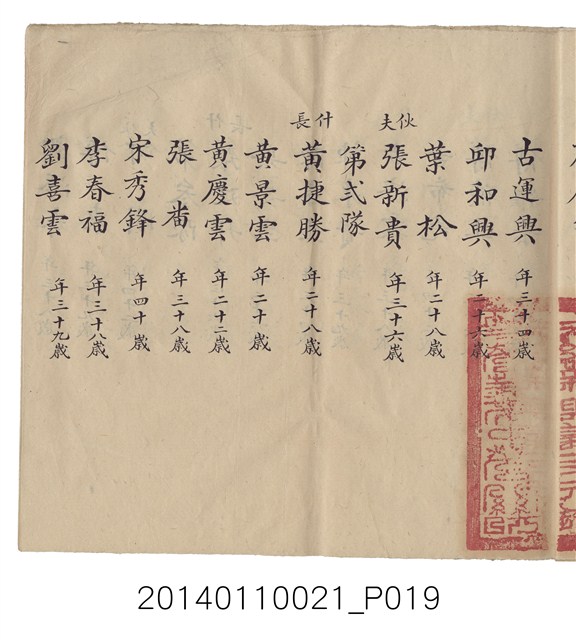 古運興 年三十四歲
邱和興 年二十六歲
葉松 年二十八歲
伙夫 張新貴 年三十六歲
第弍隊
什長 黃捷勝 年二十八歲
黃景雲 年二十歲
黃慶雲 年二十二歲
張畨 年三十八歲
宋秀鋒 年四十歲
李春福 年三十八歲
劉喜雲 年三十九歲
20140110021_P019